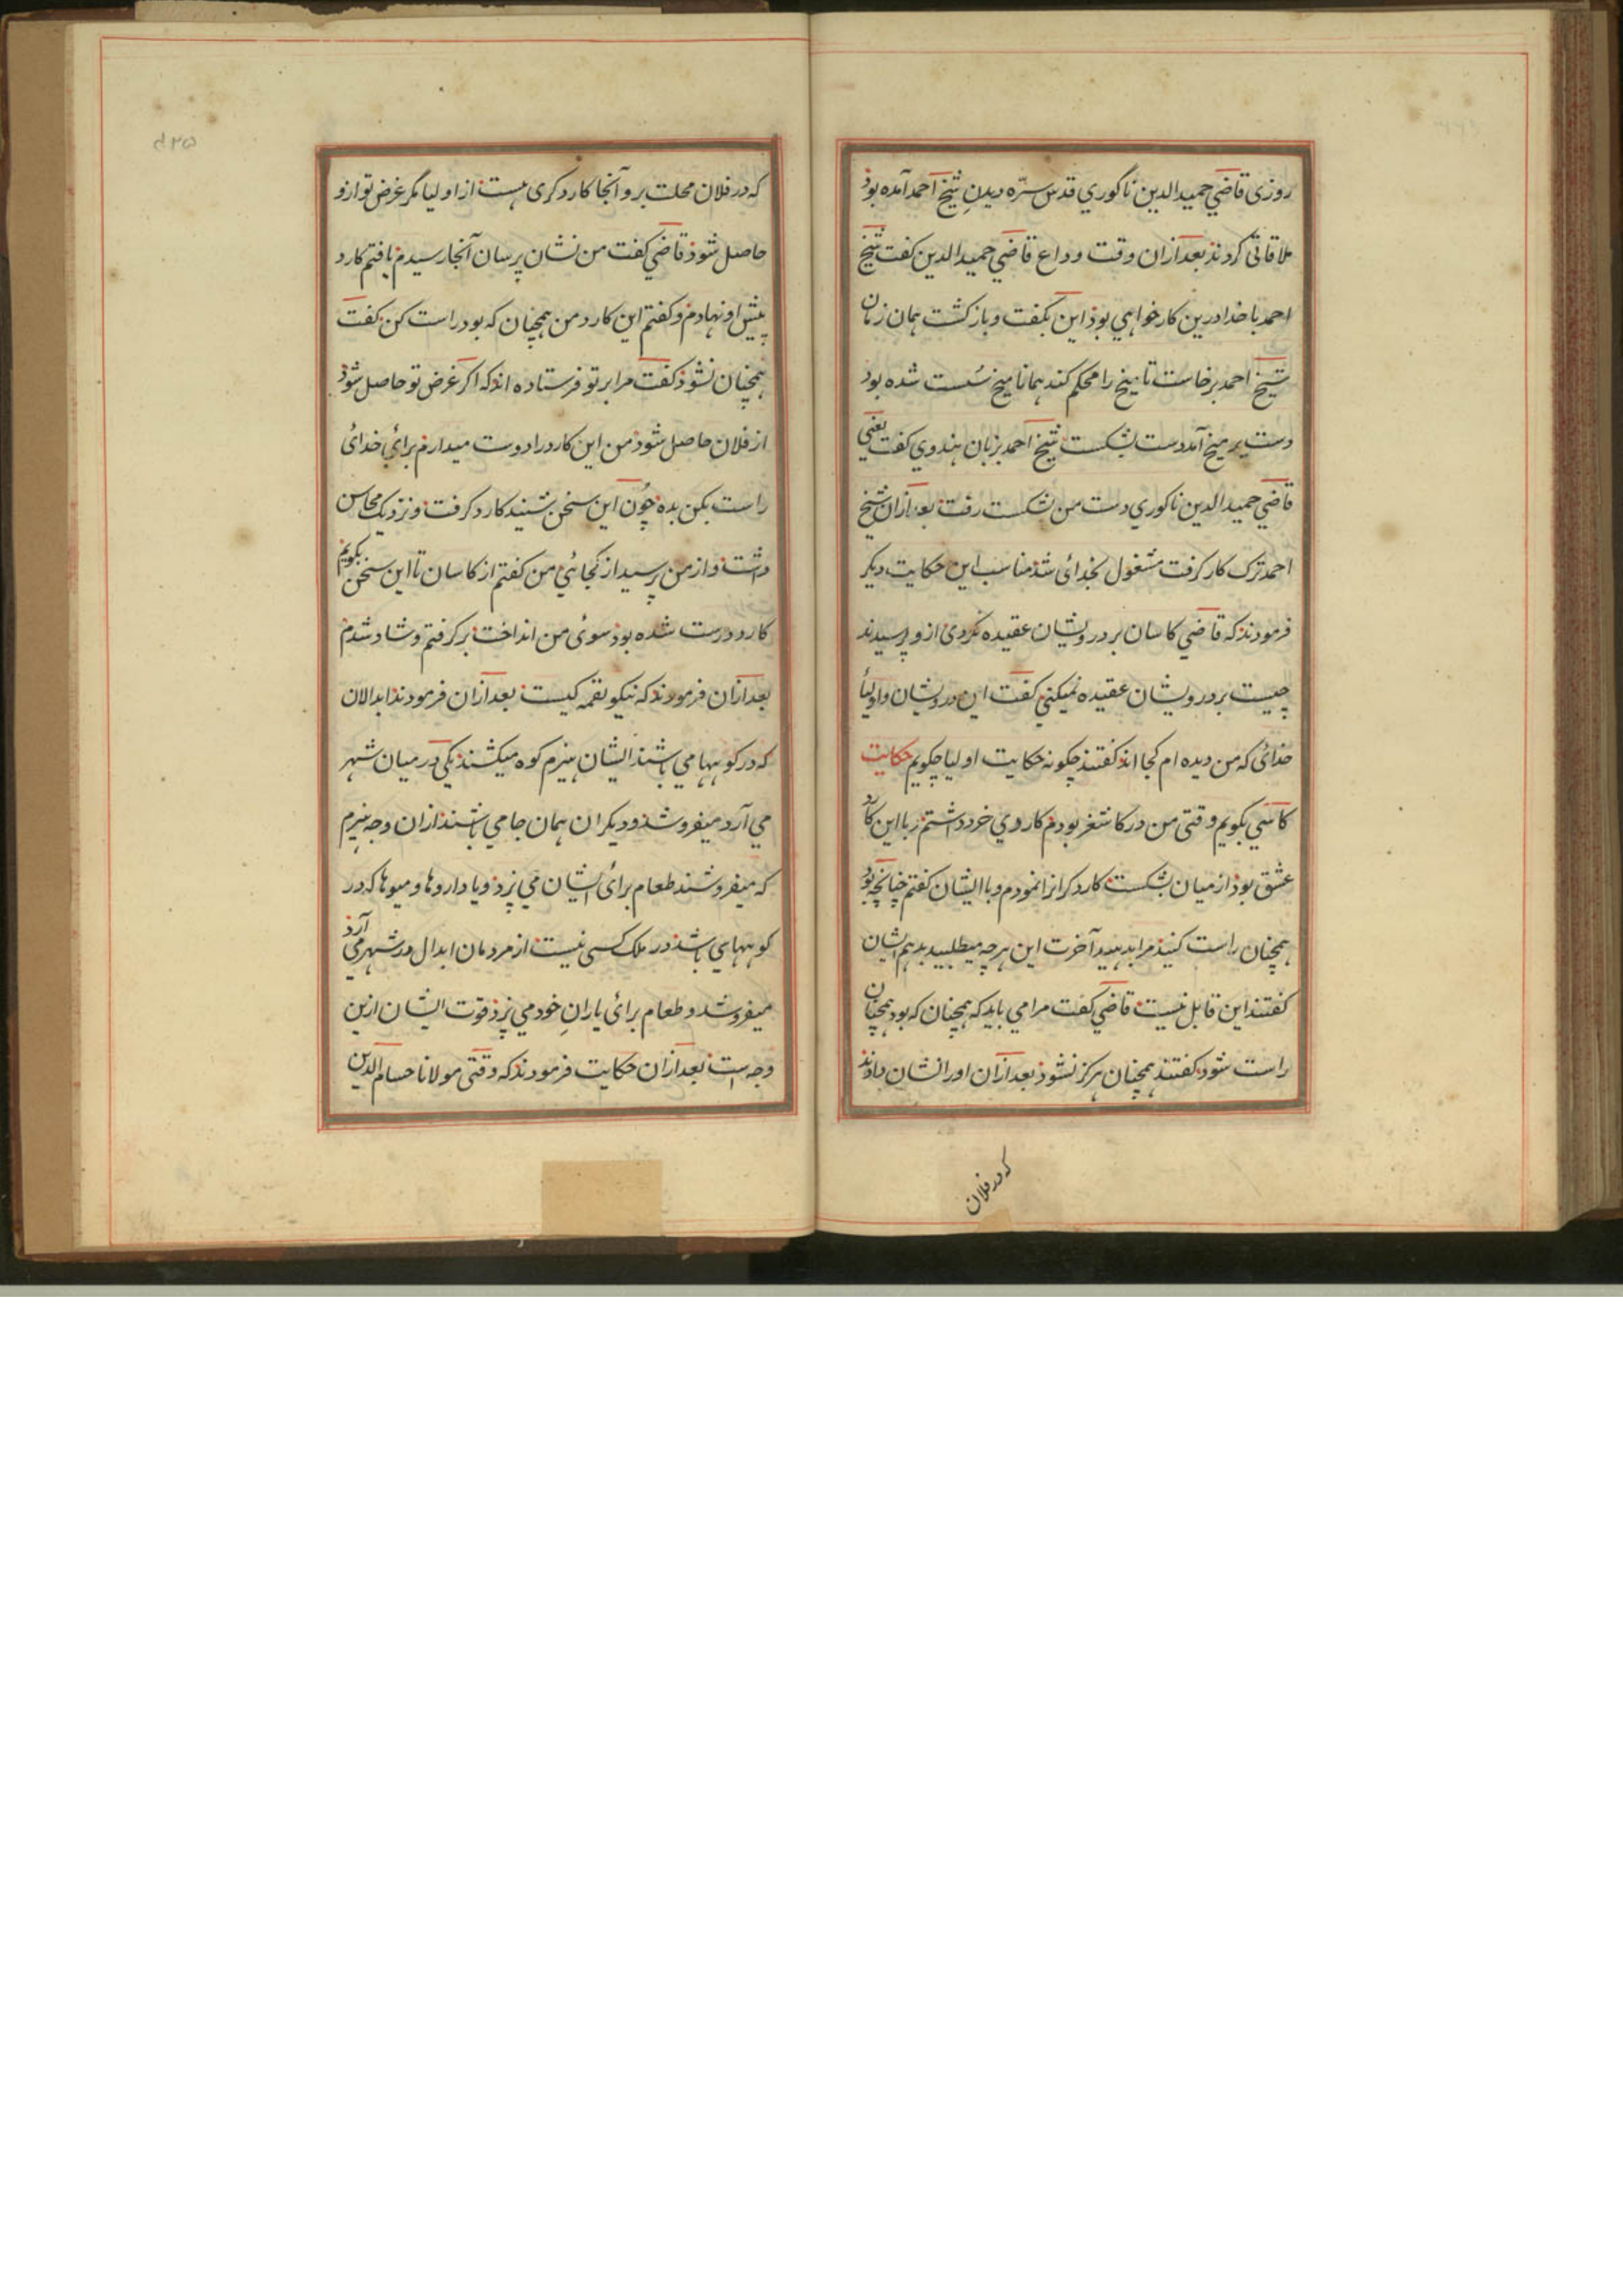 روزی قاضي حمید الدین ناگوري قدس سرّه دیدنِ شیخ احمد آمده بود
ملاقاتی کردند بعد ازان وقت وداع قاضي حمید الدین کفت شیخ
احمد با خدا درین کار خواهي بود این بکفت و بازکشت همان زمان
شیخ احمد برخاست تا میخ را محکم کند همانا میخ سُست شده بود
دست بر میخ آمد دست بشکست شیخ احمد بزبان هندوي کفت یعني
قاضي حمید الدین ناکوري دست من بشکست رفت بعد ازان شیخ
احمد ترک کار کرفت مشغول بخدائ شد مناسب این حکایت دیکر
فرمودند که قاضي کاسان بر درویشان عقیده نکردی ازو پرسیدند
چیست بر درویشان عقیده نمیکني کفت این درویشان و اولیأ
خدائ که من دیده ام کجا اند کفتند چکونه حکایت اولیا چکویم حکایت
کاسي بکویم وقتی من در کاشغر بودم کاردي خرد داشتم زبا این کارد
عشق بود از میان بشکست کارد کرانرا نمودم و با ایشان کفتم چنانچه بود
همچنان راست کنید مرا بدهید آخرت این هرچه میطلبید بدهم ایشان
کفتند این قابل نیست قاضي کفت مرا مي باید که همچنان که بود همچنان
راست شود کفتند همچنان هرکز نشود بعد ازان او را نشان دادند
که در فلان
که در فلان محلت برو آنجا کارد کری هست از اولیا مکر غرض تو ازو
حاصل شود قاضي کفت من نشان پرسان آنجا رسیدم یافتم کارد
پیش او نهادم و کفتم این کارد من همچنان که بود راست کن کفت
همچنان نشود کفت مرا بر تو فرستاده اند که اکر غرض تو حاصل شود
از فلان حاصل شود من این کارد را دوست میدارم برائ خدائ
راست بکن بده چُون این سخن بشنید کارد کرفت و نزدیک محاسن
داشت و از من پرسید از کجائي من کفتم از کاسان تا این سخن بکویم
کارد درست شده بود سوئ من انداخت برکرفتم و شاد شدم
بعد ازان فرمودند که نیکو لقمه کیست بعد ازان فرمودند ابدالان
که در کوهها مي باشند ایشان هیزم کوه میکشند یکي در میان شهر
مي آرد میفروشد و دیکران همان جا مي باشند ازان وجه هیزم
که میفروشند طعام برائ ایشان مي پزد و یا داروها و میوها که در
کوههاي باشد در ملک کسی نیست از مردمان ابدال در شهر مي آرد
میفروشد و طعام برائ یارانِ خود مي پزد قوت ایشان ازین
وجه است بعد ازان حکایت فرمودند که وقتی مولانا حسام الدین